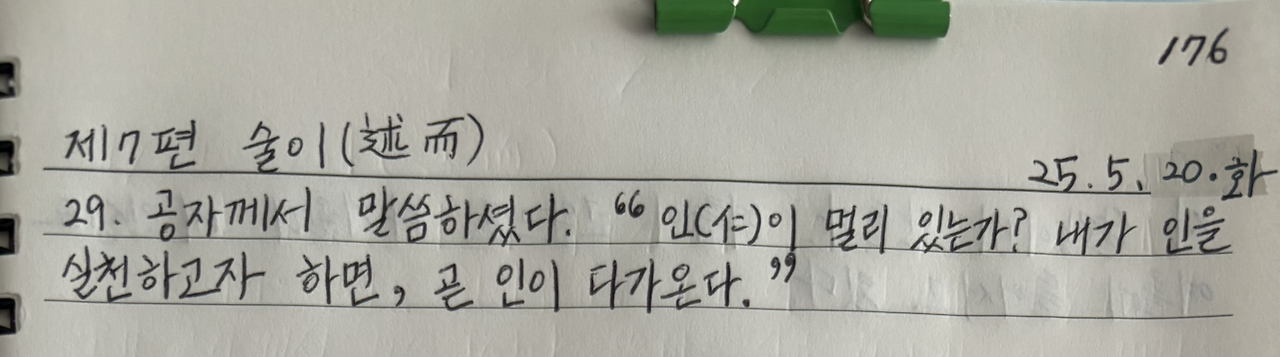 176
제7편 술이(述而)
25.5.20.화
29. 공자께서 말씀하셨다. “인(仁)이 멀리 있는가? 내가 인을
실천하고자 하면, 곧 인이 다가온다.”